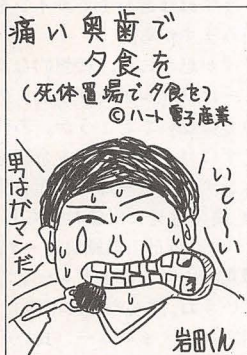 痛い奥歯で
夕食を
(死体置場で夕食を)
©ハート電子産業
いて〜い
男はガマンだ
岩田くん